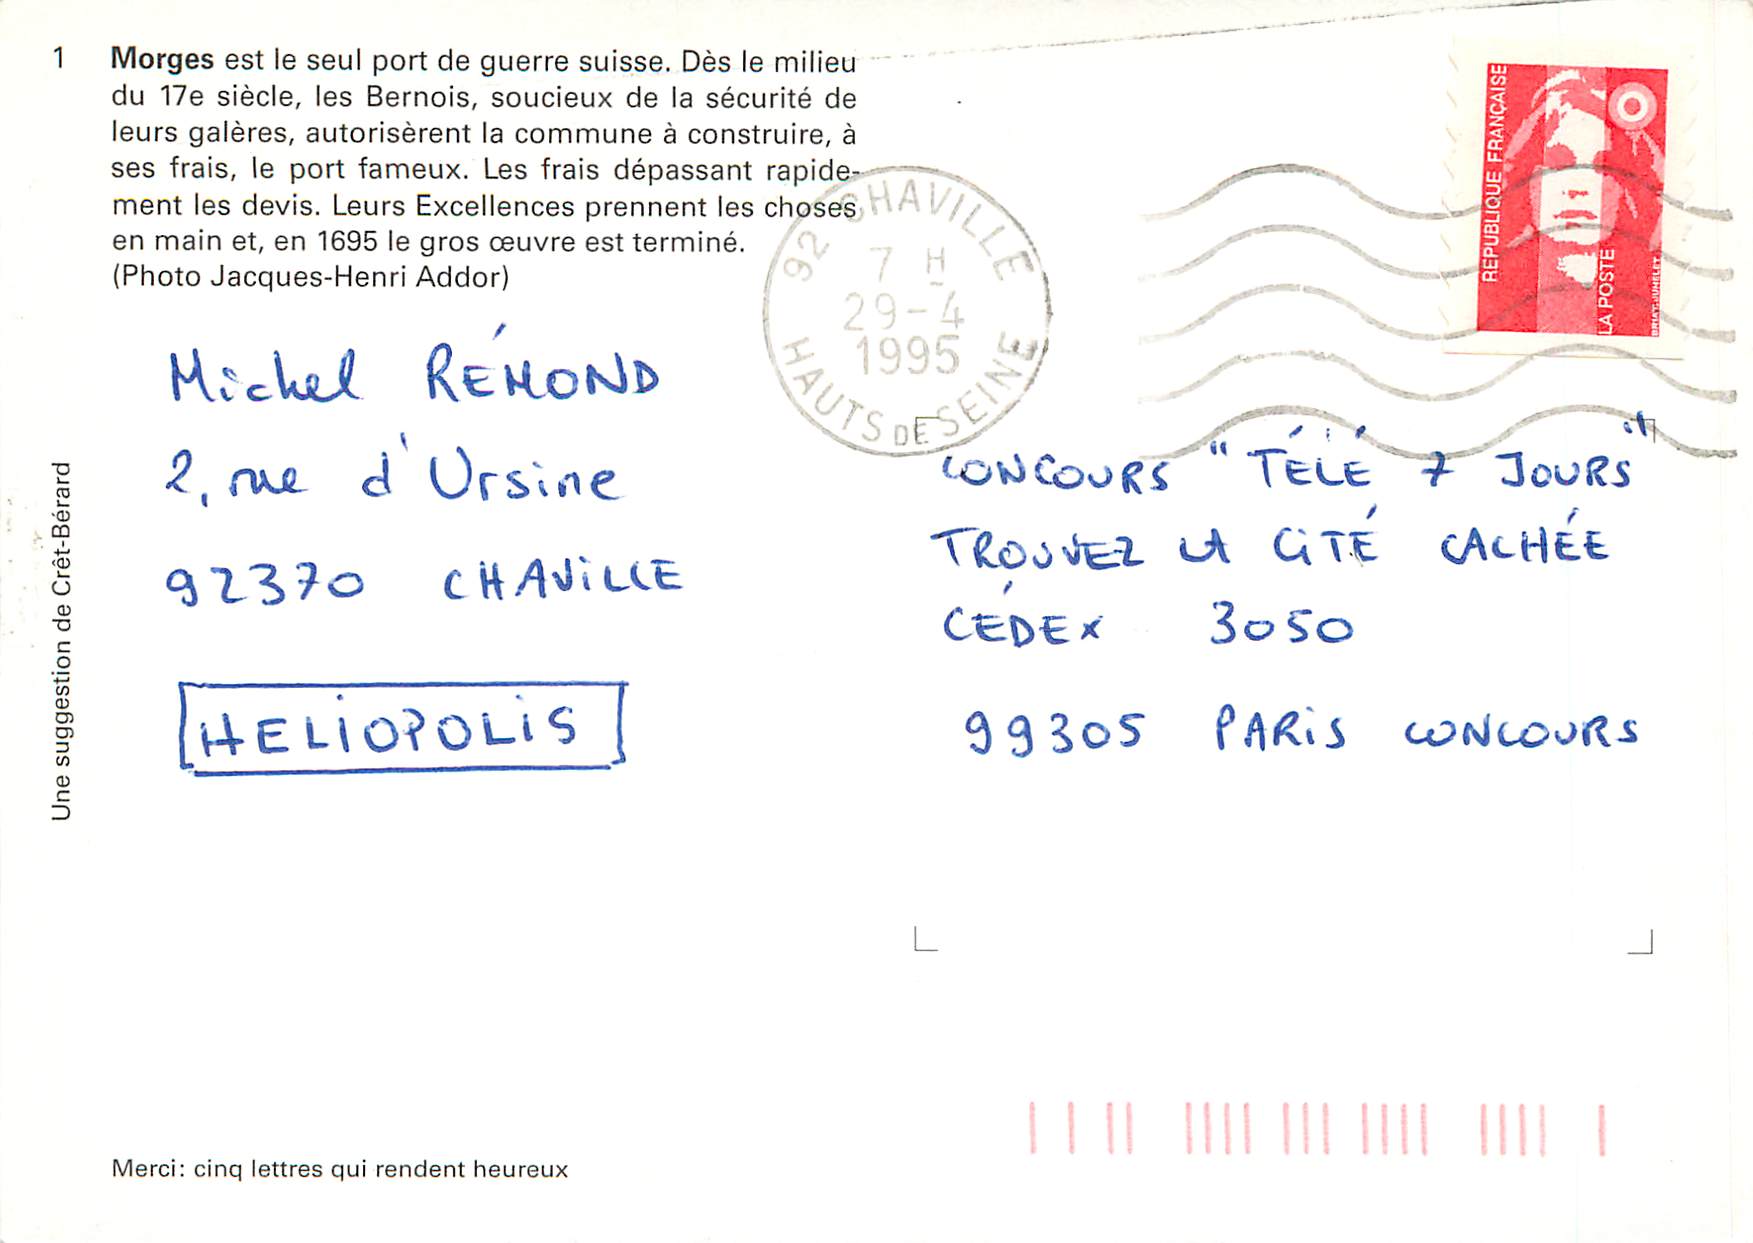 1 Morges est le seul port de guerre suisse. Dès le milieu
du 17e siècle, les Bernois, soucieux de la sécurité de
leurs galères, autorisèrent la commune à construire, à
ses frais, le port fameux. Les frais dépassant rapide-
ment les devis. Leurs Excellences prennent les choses
en main et, en 1695 le gros œuvre est terminé.
(Photo Jacques-Henri Addor)
92 CHAVILLE
7 H
29-4
1995
HAUTS DE SEINE
REPUBLIQUE FRANÇAISE
LA POSTE
BRIAT-JUMELET
Michel RÉMOND
2, rue d'Ursine
92370 CHAViLLE
HELIOPOLiS
CONCOURS "TÉLÉ 7 JOURS"
TROUVEZ LA CiTÉ CACHÉE
CÉDEX 3050
99305 PARiS CONCOURS
Une suggestion de Crêt-Bérard
Merci: cinq lettres qui rendent heureux